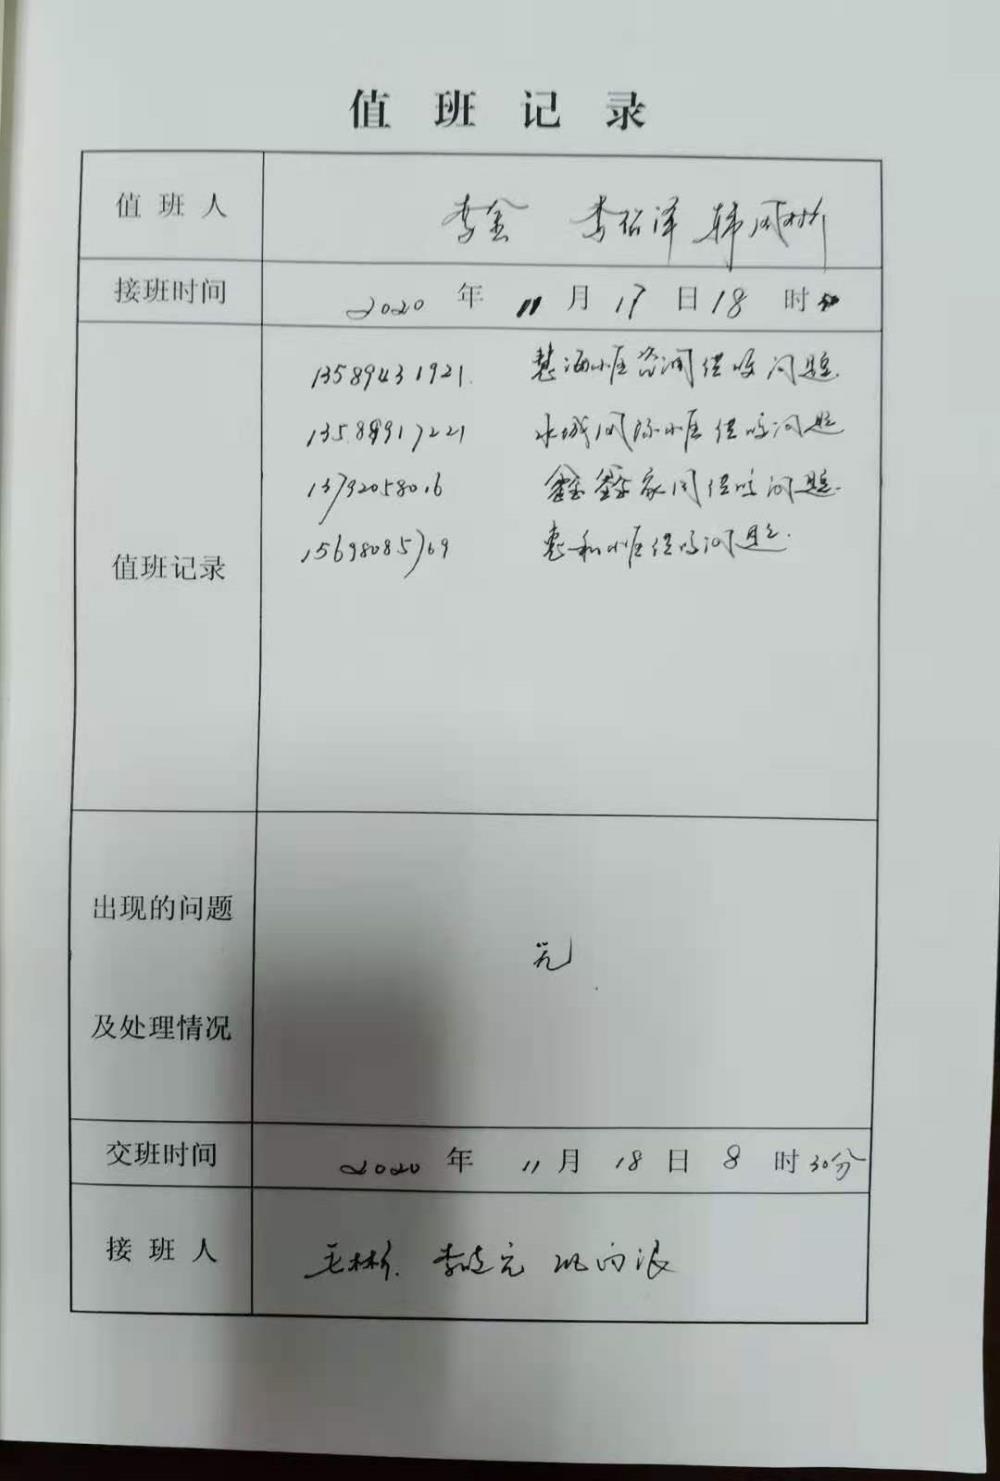 值班记录
值班人 李金 李绍泽 韩风彬
接班时间 2020年11月17日18时
13589431921. 慧海小区咨询供暖问题.
13589917221 水城风源小区供暖问题
13792058016 鑫鑫家园供暖问题.
值班记录
15698085769 惠和小区供暖问题.
出现的问题
无
及处理情况
交班时间 2020年11月18日8时30分
接班人 王彬. 李